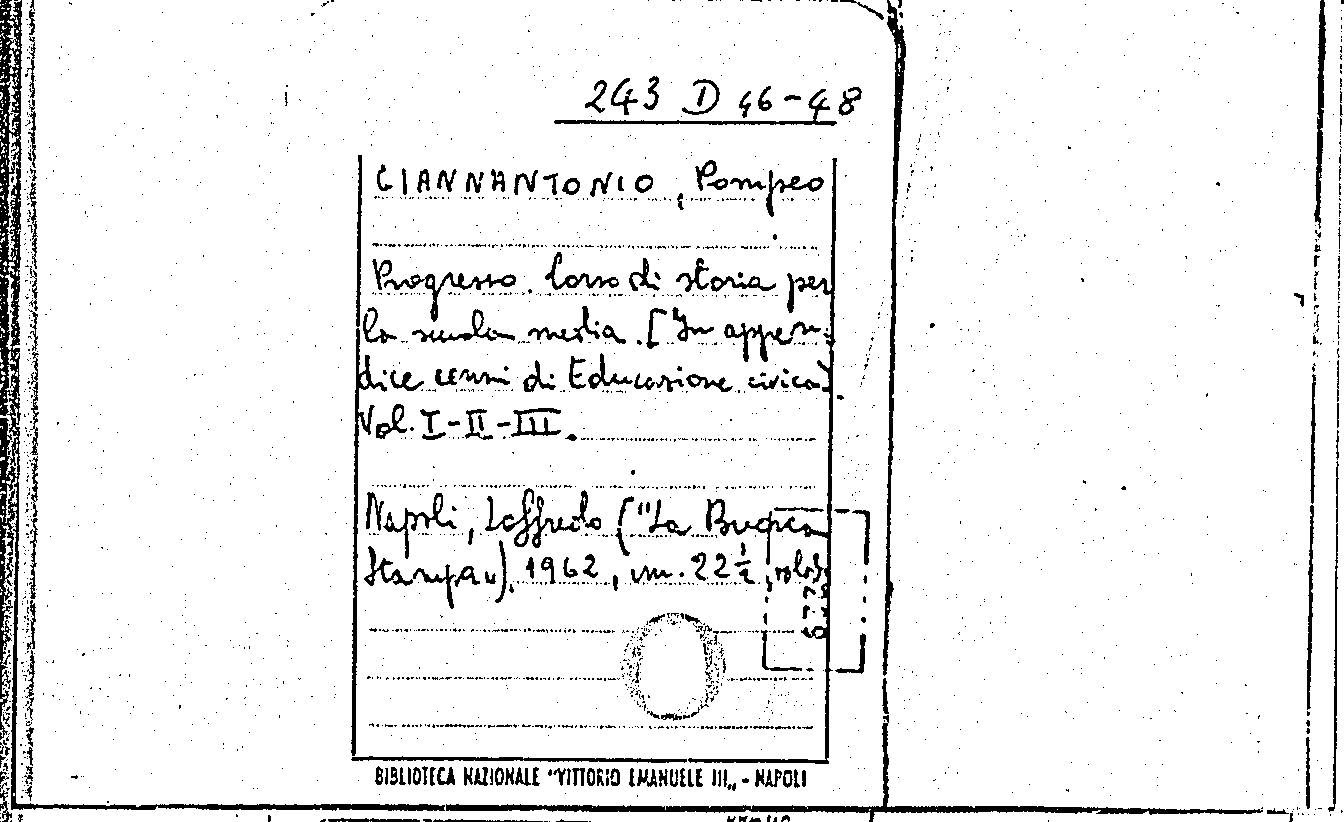 243 D 46-48
GIANNANTONIO, Pompeo
Progresso. Corso di storia per
la scuola media. [In appen-
dice cenni di Educazione civica].
Vol. I-II-III.
Napoli, Loffredo ("La Buona
Stampa"), 1962, cm. 22½, voll. 3
BIBLIOTECA NAZIONALE "VITTORIO EMANUELE III„ - NAPOLI